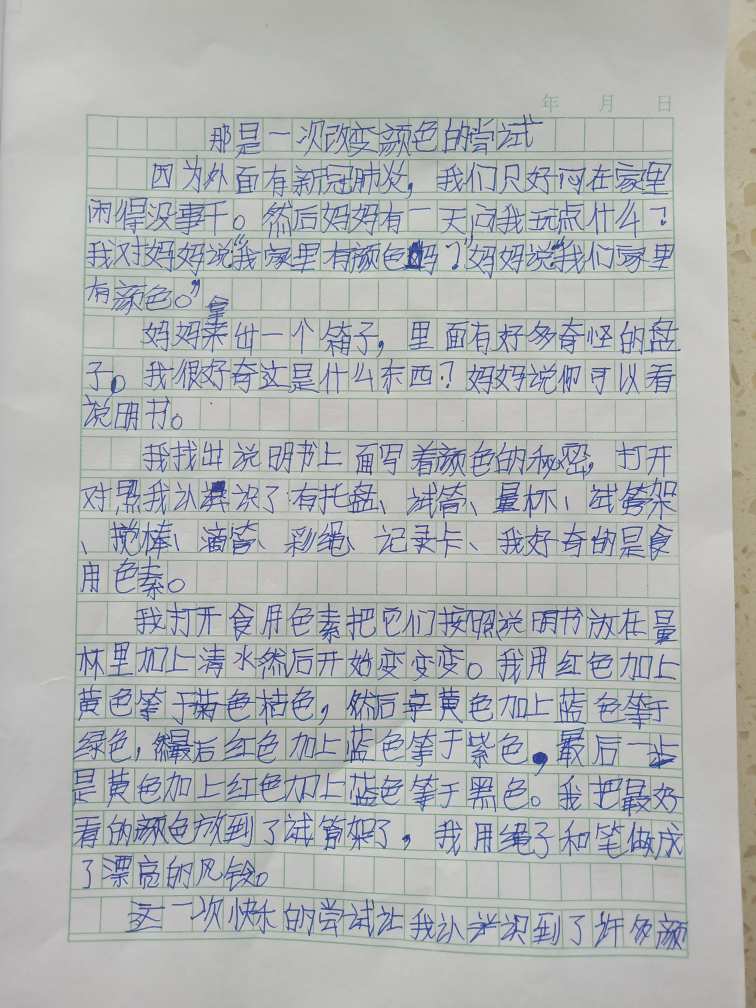 年 月 日
那是一次改变颜色的尝试
因为外面有新冠肺炎，我们只好闷在家里
闲得没事干。然后妈妈有一天问我玩点什么？
我对妈妈说“我家里有颜色吗？”妈妈说“我们家里
有颜色。”
妈妈拿出一个箱子，里面有好多奇怪的盘
子。我很好奇这是什么东西？妈妈说你可以看
说明书。
我找出说明书上面写着颜色的秘密，打开
对照我认识了有托盘、试管、量杯、试管架
、搅棒、滴管、彩绳、记录卡、我好奇的是食
用色素。
我打开食用色素把它们按照说明书放在量
杯里加上清水然后开始变变变。我用红色加上
黄色等于桔色，然后黄色加上蓝色等于
绿色，最后红色加上蓝色等于紫色，最后一步
是黄色加上红色加上蓝色等于黑色。我把最好
看的颜色放到了试管架了，我用绳子和笔做成
了漂亮的风铃。
这一次快乐的尝试让我认识到了许多颜